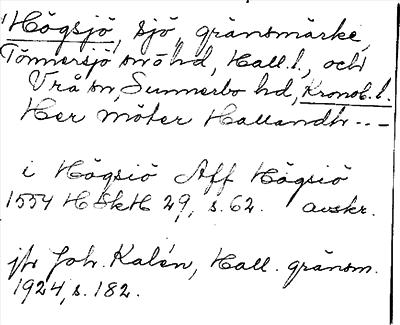 'Högsjö', sjö, gränsmärke,
Tönnersjö sn o hd, Hall. l., och
Vrå sn, Sunnerbo hd, Kronob. l.
Her möter Hallandh ---
i Högsiö Aff Högsiö
1554 HSkH 29, s. 62. avskr.
jfr Joh. Kalén, Hall. gränsm.
1924, s. 182.